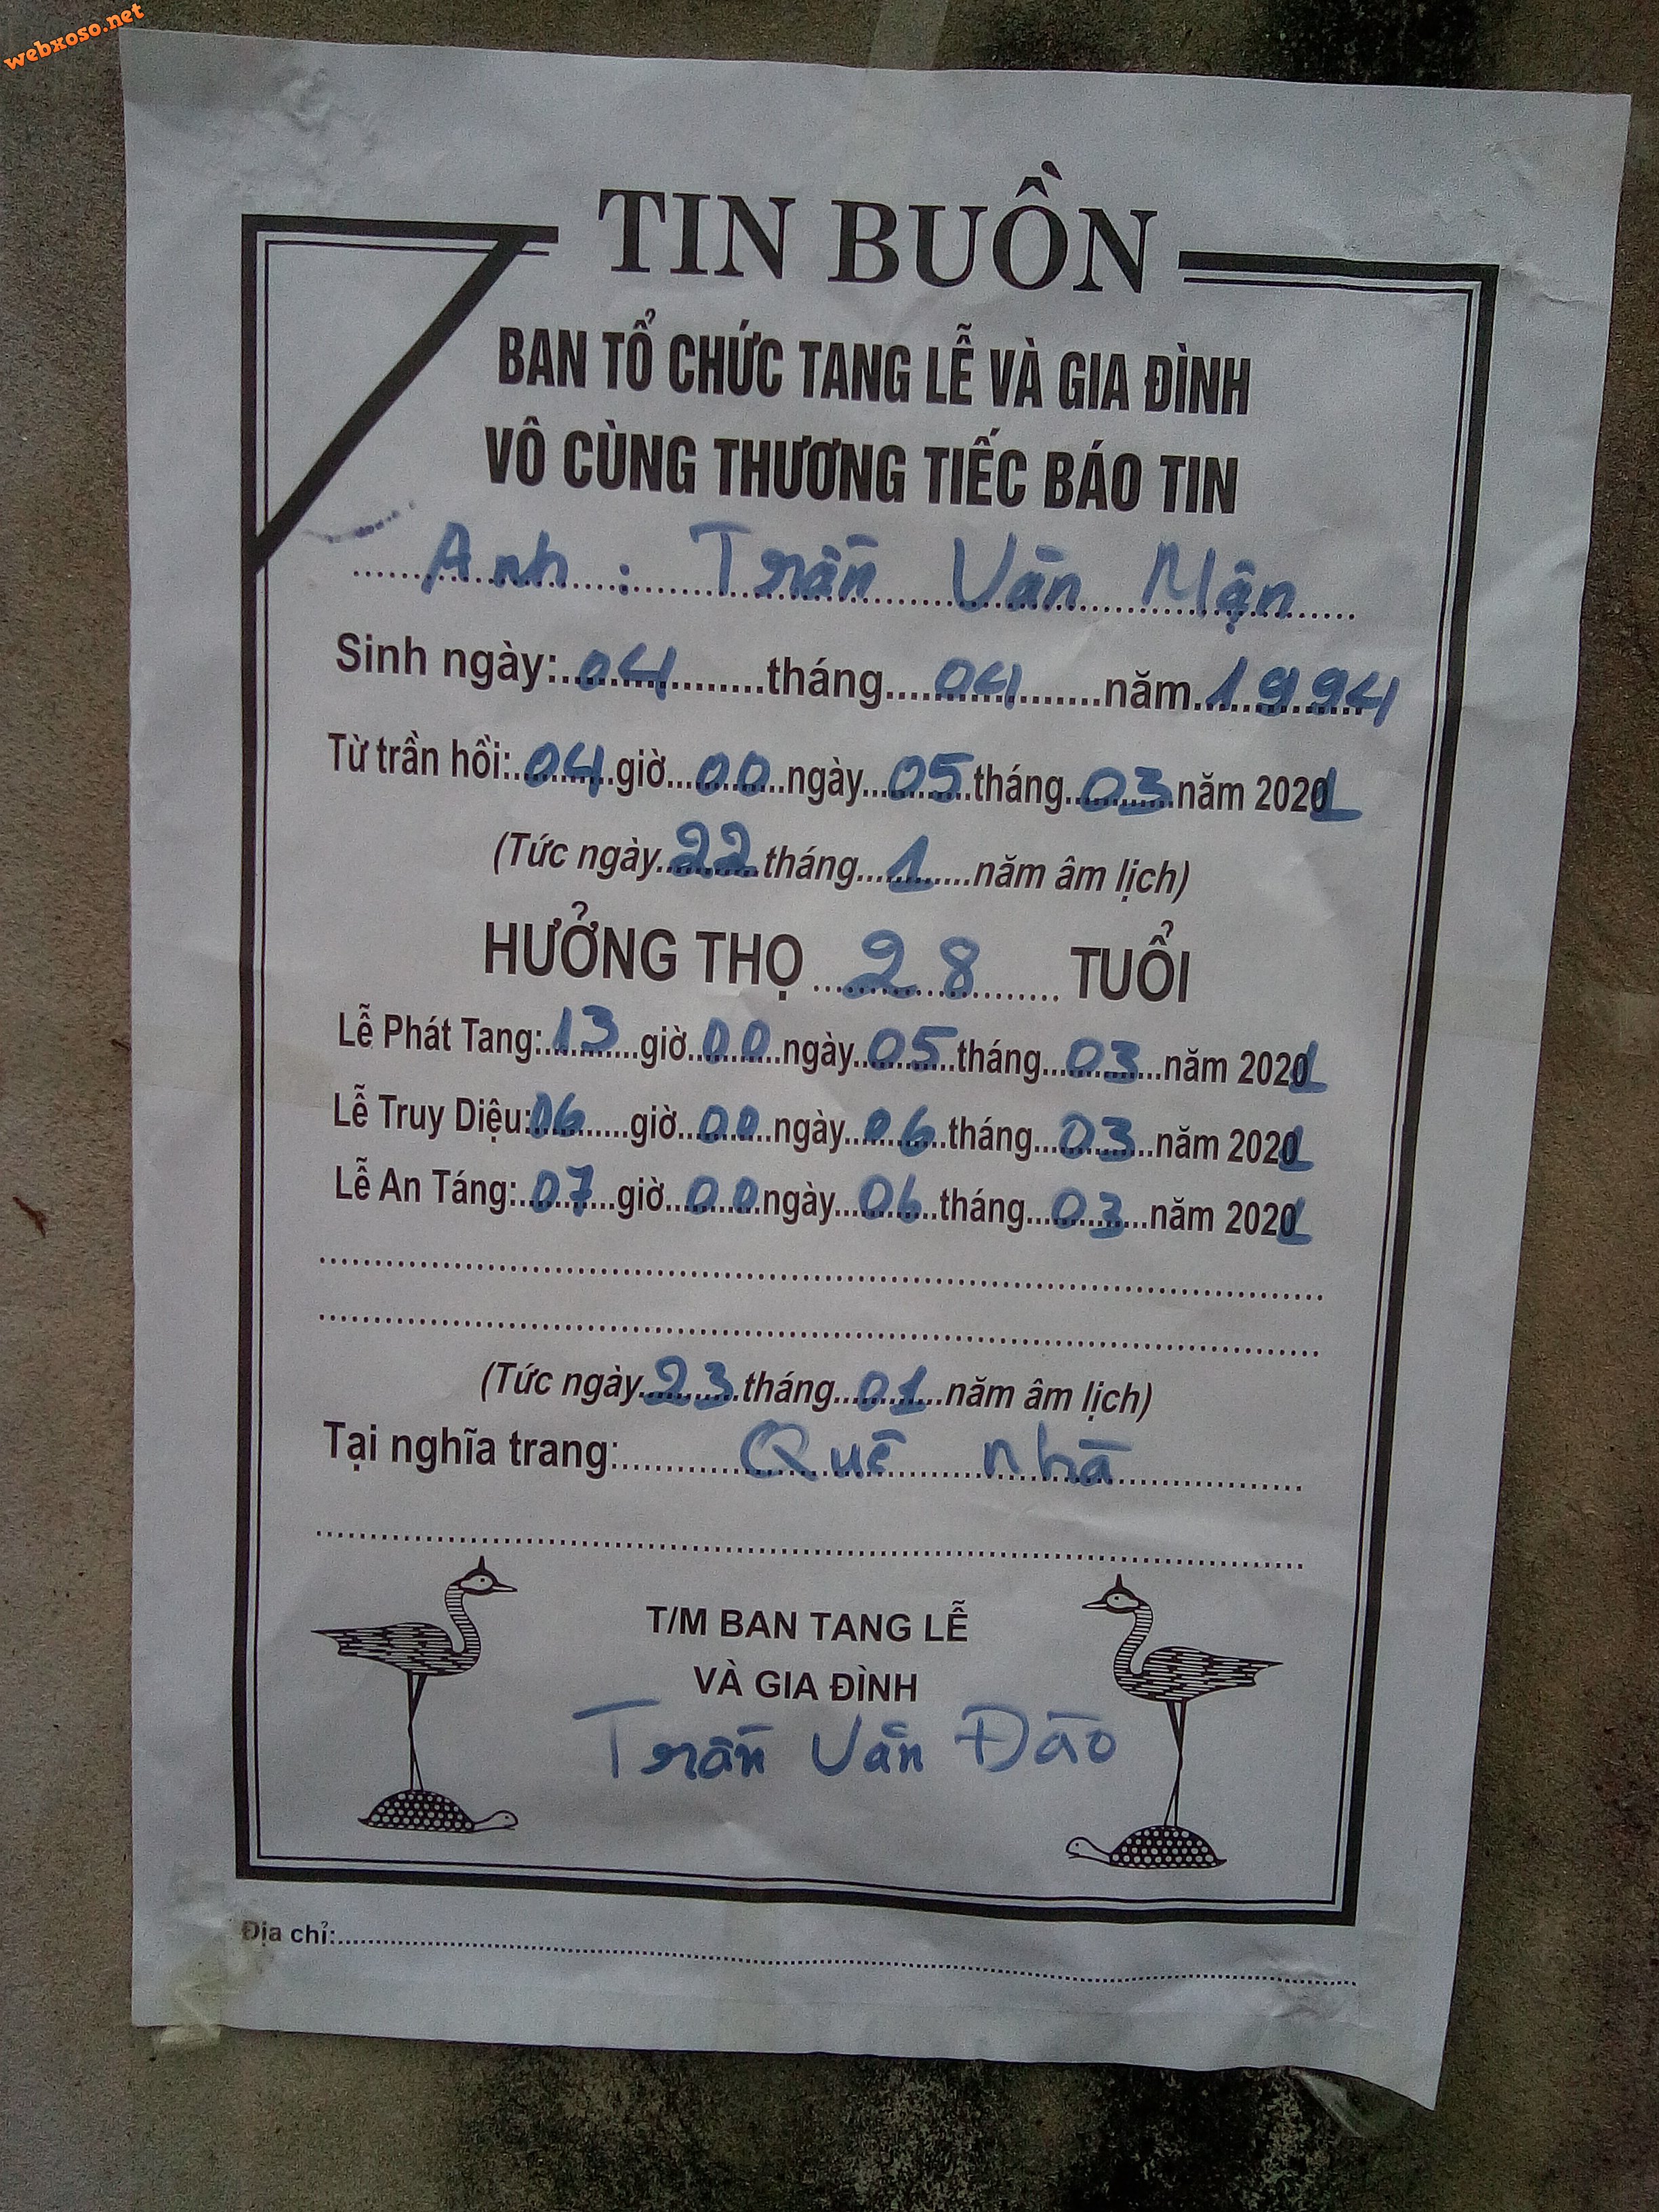 webxoso.net
TIN BUỒN
BAN TỔ CHỨC TANG LỄ VÀ GIA ĐÌNH
VÔ CÙNG THƯƠNG TIẾC BÁO TIN
Anh : Trần Văn Mận
Sinh ngày: 04 tháng 04 năm 1994
Từ trần hồi: 04 giờ 00 ngày 05 tháng 03 năm 2021
(Tức ngày 22 tháng 1 năm âm lịch)
HƯỞNG THỌ 28 TUỔI
Lễ Phát Tang: 13 giờ 00 ngày 05 tháng 03 năm 2021
Lễ Truy Diệu: 06 giờ 00 ngày 06 tháng 03 năm 2021
Lễ An Táng: 07 giờ 00 ngày 06 tháng 03 năm 2021
(Tức ngày 23 tháng 01 năm âm lịch)
Tại nghĩa trang: Quê nhà
T/M BAN TANG LỄ
VÀ GIA ĐÌNH
Trần Văn Đào
Địa chỉ: